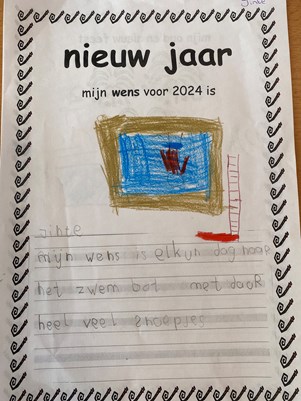 Jinte
nieuw jaar
mijn wens voor 2024 is
jinte
mijn wens is elkun dag naar
het zwem bat met dook
heel veel snoepjes